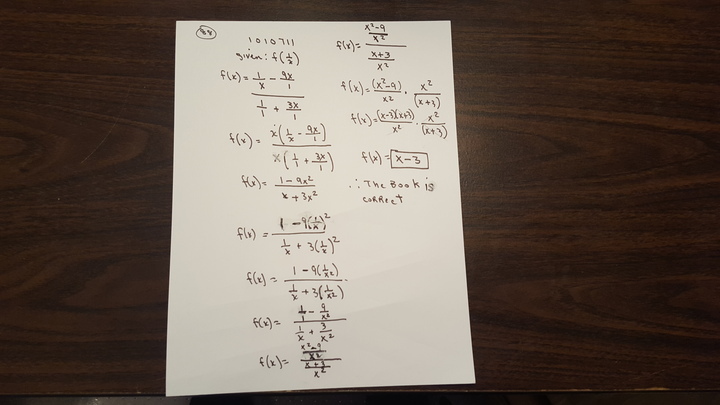 88
1010711
given: f(1/x)
f(x) = (1/x - 9x/1) / (1/1 + 3x/1)
f(x) = x(1/x - 9x/1) / x(1/1 + 3x/1)
f(x) = (1 - 9x²) / (x + 3x²)
f(x) = (1 - 9(1/x)²) / (1/x + 3(1/x)²)
f(x) = (1 - 9(1/x²)) / (1/x + 3(1/x²))
f(x) = (1/1 - 9/x²) / (1/x + 3/x²)
f(x) = ((x²-9)/x²) / ((x+3)/x²)
f(x) = ((x²-9)/x²) / ((x+3)/x²)
f(x) = (x²-9)/x² · x²/(x+3)
f(x) = (x-3)(x+3)/x² · x²/(x+3)
f(x) = x-3
∴ The Book is
correct